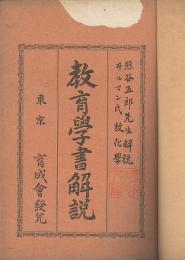 熊谷五郎先生解説
井ルマン氏教化學
教育學書解説
東京
育成會發兌